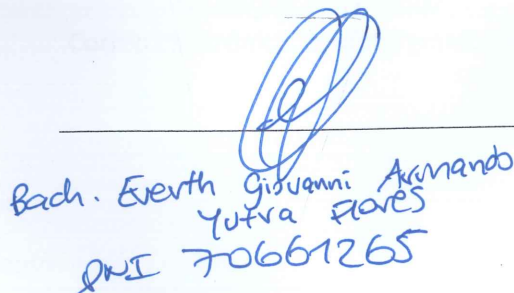 Bach. Everth Giovanni Armando
Yutra Flores
DNI 70661265